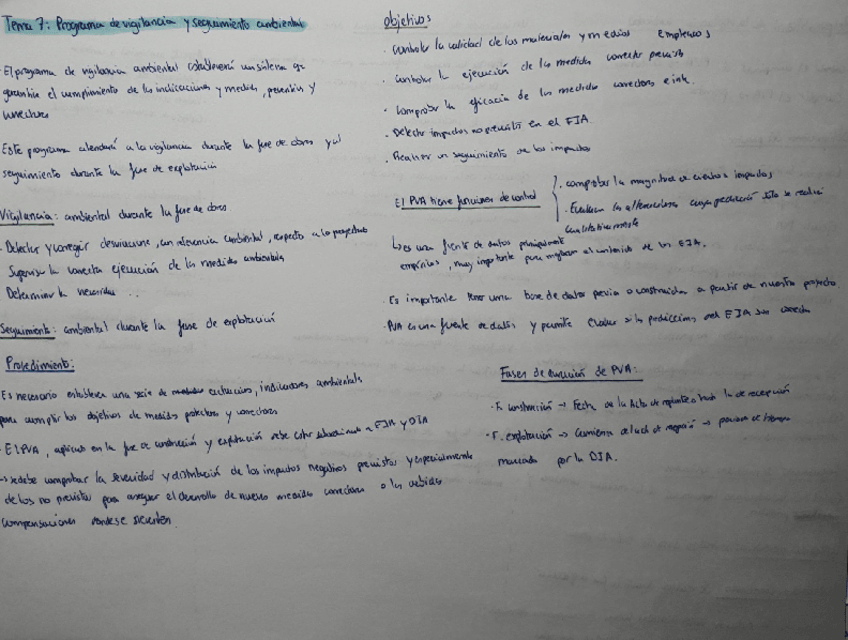 Tema 7: Programa de vigilancia y seguimiento ambiental
El programa de vigilancia ambiental establecerá un sistema que
garantice el cumplimiento de las indicaciones y medidas, preventivas y
correctoras
Este programa atenderá a la vigilancia durante la fase de obras y al
seguimiento durante la fase de explotación
Vigilancia: ambiental durante la fase de obras
- Detectar y corregir desviaciones, con relevancia ambiental, respecto a lo proyectado
Supervisar la correcta ejecución de las medidas ambientales
Determinar la necesidad ...
Seguimiento: ambiental durante la fase de explotación
Procedimiento:
Es necesario establecer una serie de indicadores ambientales
para cumplir los objetivos de medidas protectoras y correctoras
- El PVA, aplicado en la fase de construcción y explotación debe estar a EIA y DIA
→ se debe comprobar la severidad y distribución de los impactos negativos previstos y especialmente
de los no previstos para asegurar el desarrollo de nuevas medidas correctoras o las debidas
compensaciones donde se necesiten.
objetivos
. controlar la calidad de los materiales y medios empleados
. controlar la ejecución de las medidas
. comprobar la eficacia de las medidas correctoras
. Detectar impactos no previstos en el EIA
. Realizar un seguimiento de los impactos
El PVA tiene funciones de control
. comprobar la magnitud de ciertos impactos
. Evaluar las alteraciones cuya predicción sólo se realiza
cualitativamente
Es una fuente de datos principalmente
empíricos, muy importante para mejorar el contenido de los EIA.
. Es importante tener una base de datos previa o construida a partir de nuestro proyecto
. PVA es una fuente de datos y permite evaluar si las predicciones del EIA son correctas
Fases de PVA:
- F. construcción → Fecha de la Acta de replanteo hasta la de recepción
- F. explotación → →
marcado por la DIA.